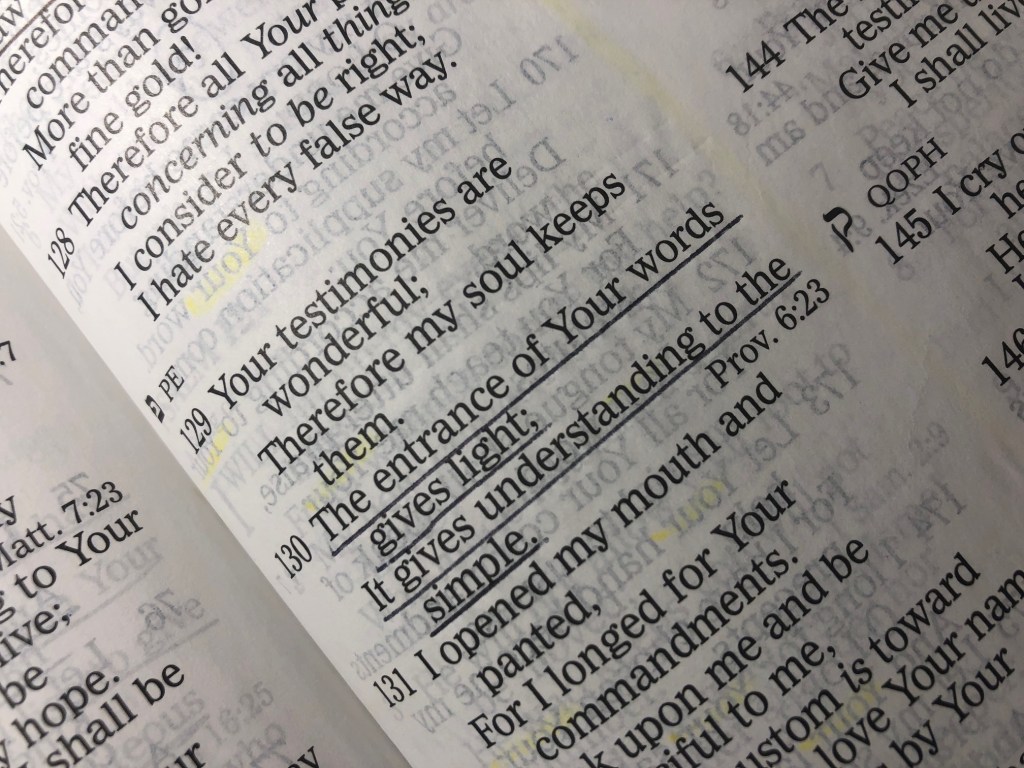 7:23
Matt. 7:23
to Your
be
hope.
shall be
comman
More than go
fine gold!
128 Therefore all Your
concerning all thing
I consider to be right;
I hate every false way.
פ PE
129 Your testimonies are
wonderful;
Therefore my soul keeps
them.
130 The entrance of Your words
gives light;
It gives understanding to the
simple. Prov. 6:23
131 I opened my mouth and
panted,
For I longed for Your
commandments.
upon me and be
to me,
is toward
love Your nam
by Your
144 The
Give me
I shall liv
ק QOPH
145 I cry o
146